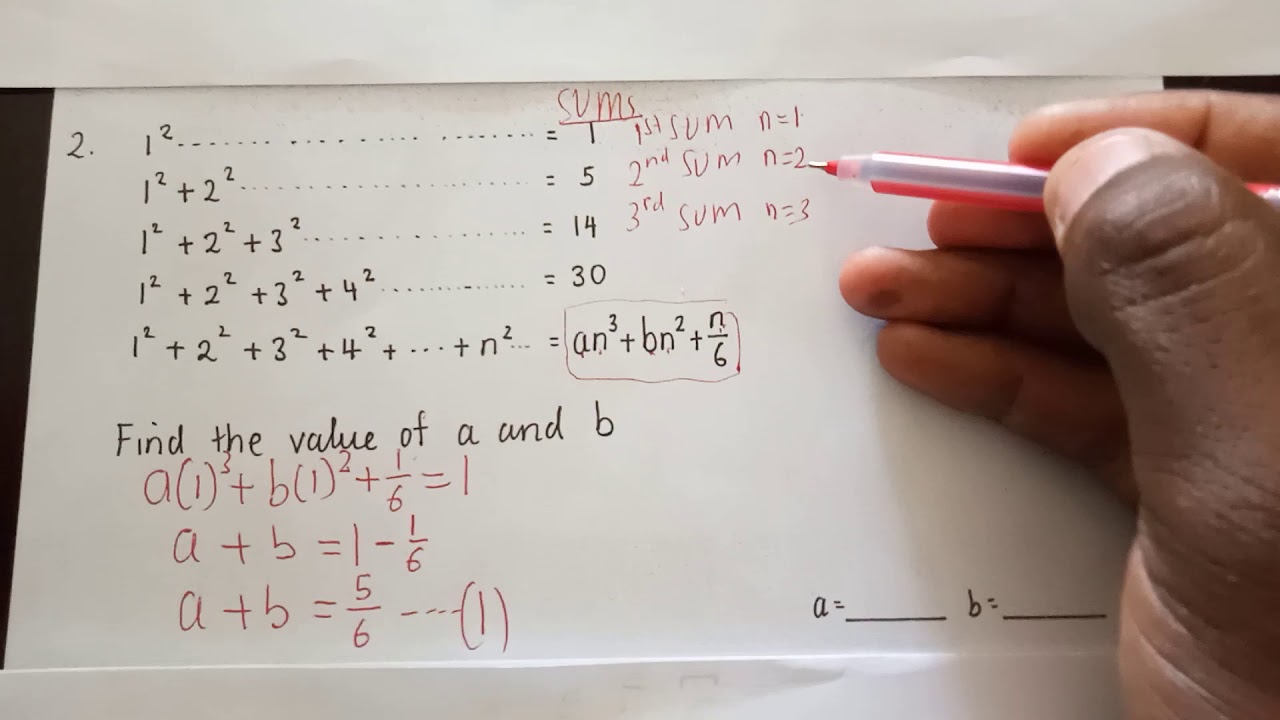 SUMS
2. 1².................... = 1 1st SUM n=1
1² + 2².................... = 5 2nd SUM n=2
1² + 2² + 3².................... = 14 3rd SUM n=3
1² + 2² + 3² + 4².................... = 30
1² + 2² + 3² + 4² + ... + n²... = an³+bn²+n/6
Find the value of a and b
a(1)³+ b(1)² + 1/6 = 1
a + b = 1 - 1/6
a + b = 5/6 ----(1)
a=______ b=______